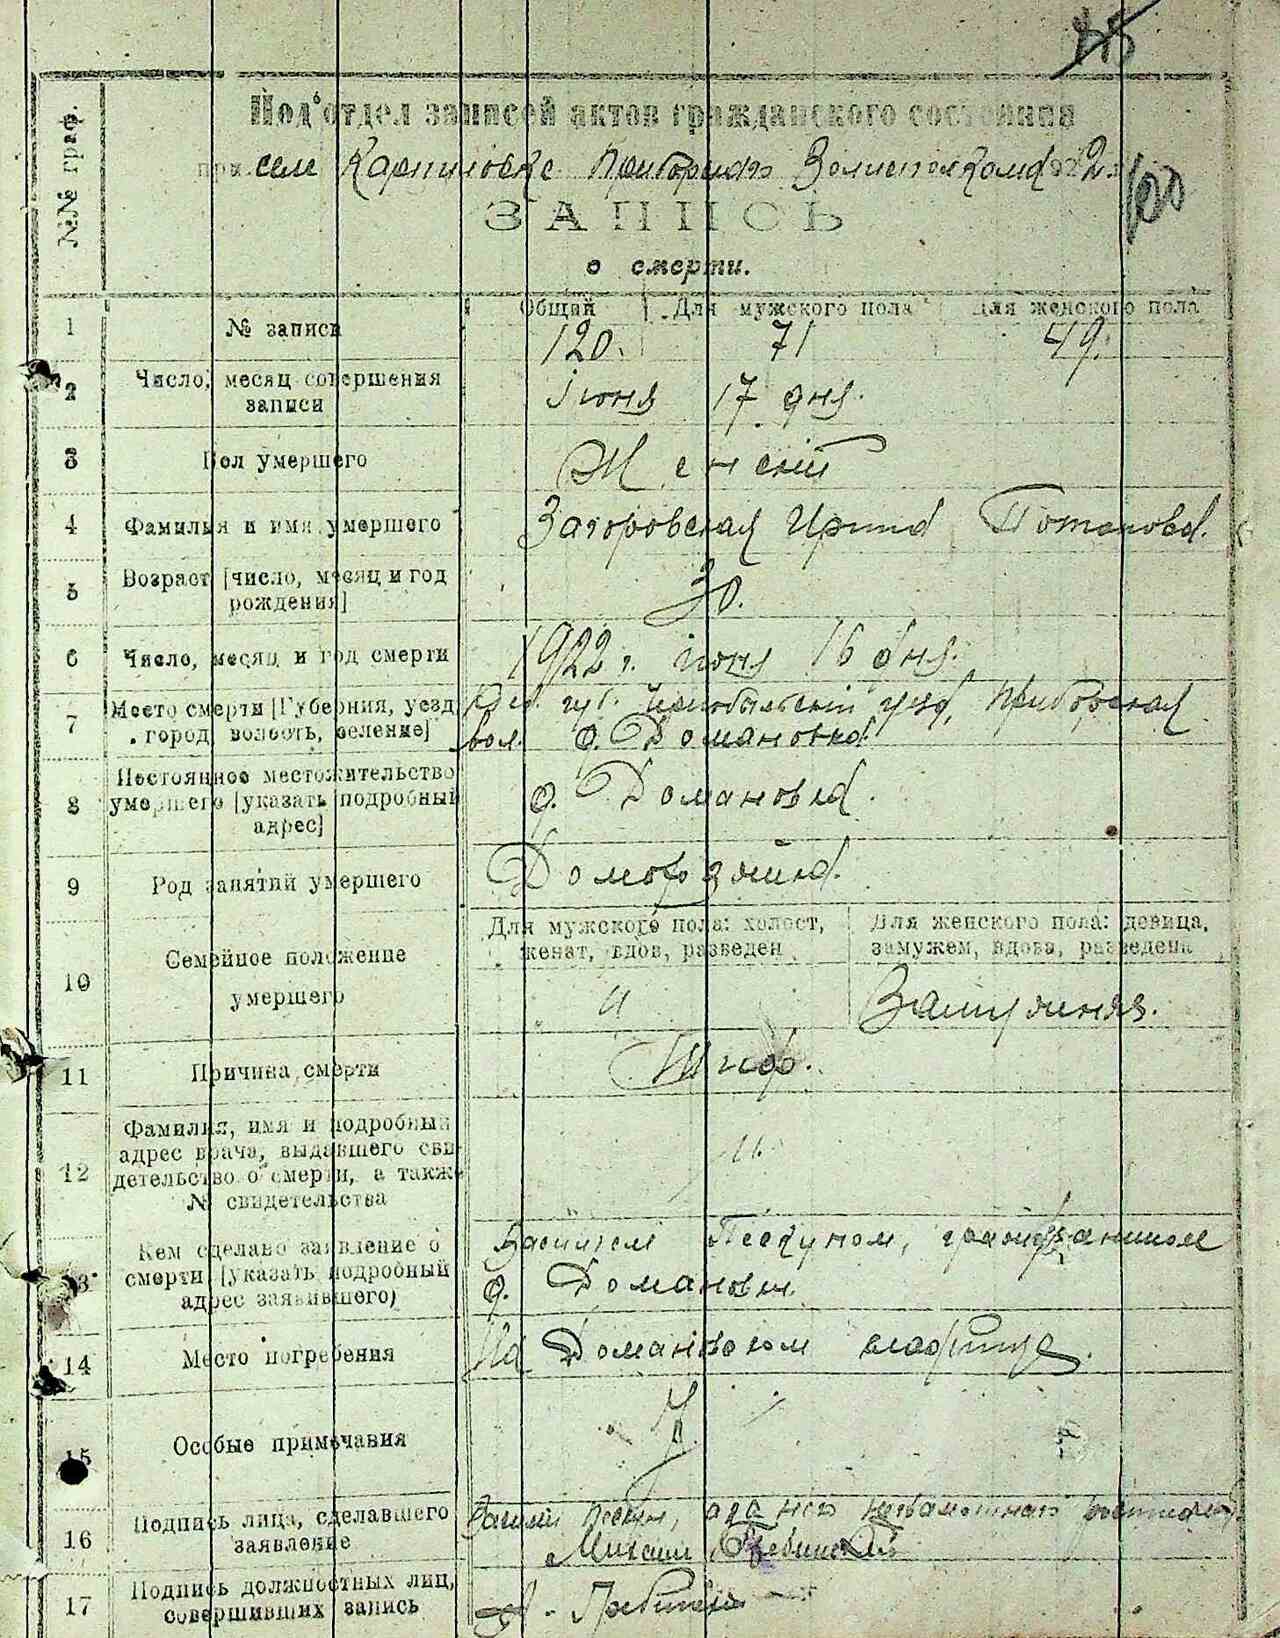 №№ граф.
Под'отдел записей актов гражданского состояния
при селе Карпиловке Приборского 1922 г.
100
ЗАПИСЬ
о смерти.
Общий Для мужского пола Для женского пола
1 № записи 120. 71 49.
2 Число, месяц совершения
записи
Июня 17 дня.
3 Пол умершего Женский
4 Фамилья и имя умершего Загоровская Ирина Потапова.
5 Возраст [число, месяц и год
рождения]
30.
6 Число, месяц и год смерти 1922 г. июня 16 дня.
7 Место смерти [Губерния, уезд
город, волость, селение]
губ. Чернобыльский уезд, Приборская
вол. д. Домановка
8 Постоянное местожительство
умершего [указать подробный
адрес]
д. Домановка.
9 Род занятий умершего Домохозяйка.
10 Семейное положение
умершего
Для мужского пола: холост,
женат, вдов, разведен
Для женского пола: девица,
замужем, вдова, разведена
Замужняя.
11 Причина смерти Тиф.
12 Фамилия, имя и подробный
адрес врача, выдавшего сви-
детельство о смерти, а также
№ свидетельства
13 Кем сделано заявление о
смерти [указать подробный
адрес заявившего)
Василем Пескуном, гражданином
д. Домановки.
14 Место погребения На Домановском кладбище.
15 Особые примечания
16 Подпись лица, сделавшего
заявление
Пескун, а за него неграмотного
Михаил
17 Подпись должностных лиц,
совершивших запись